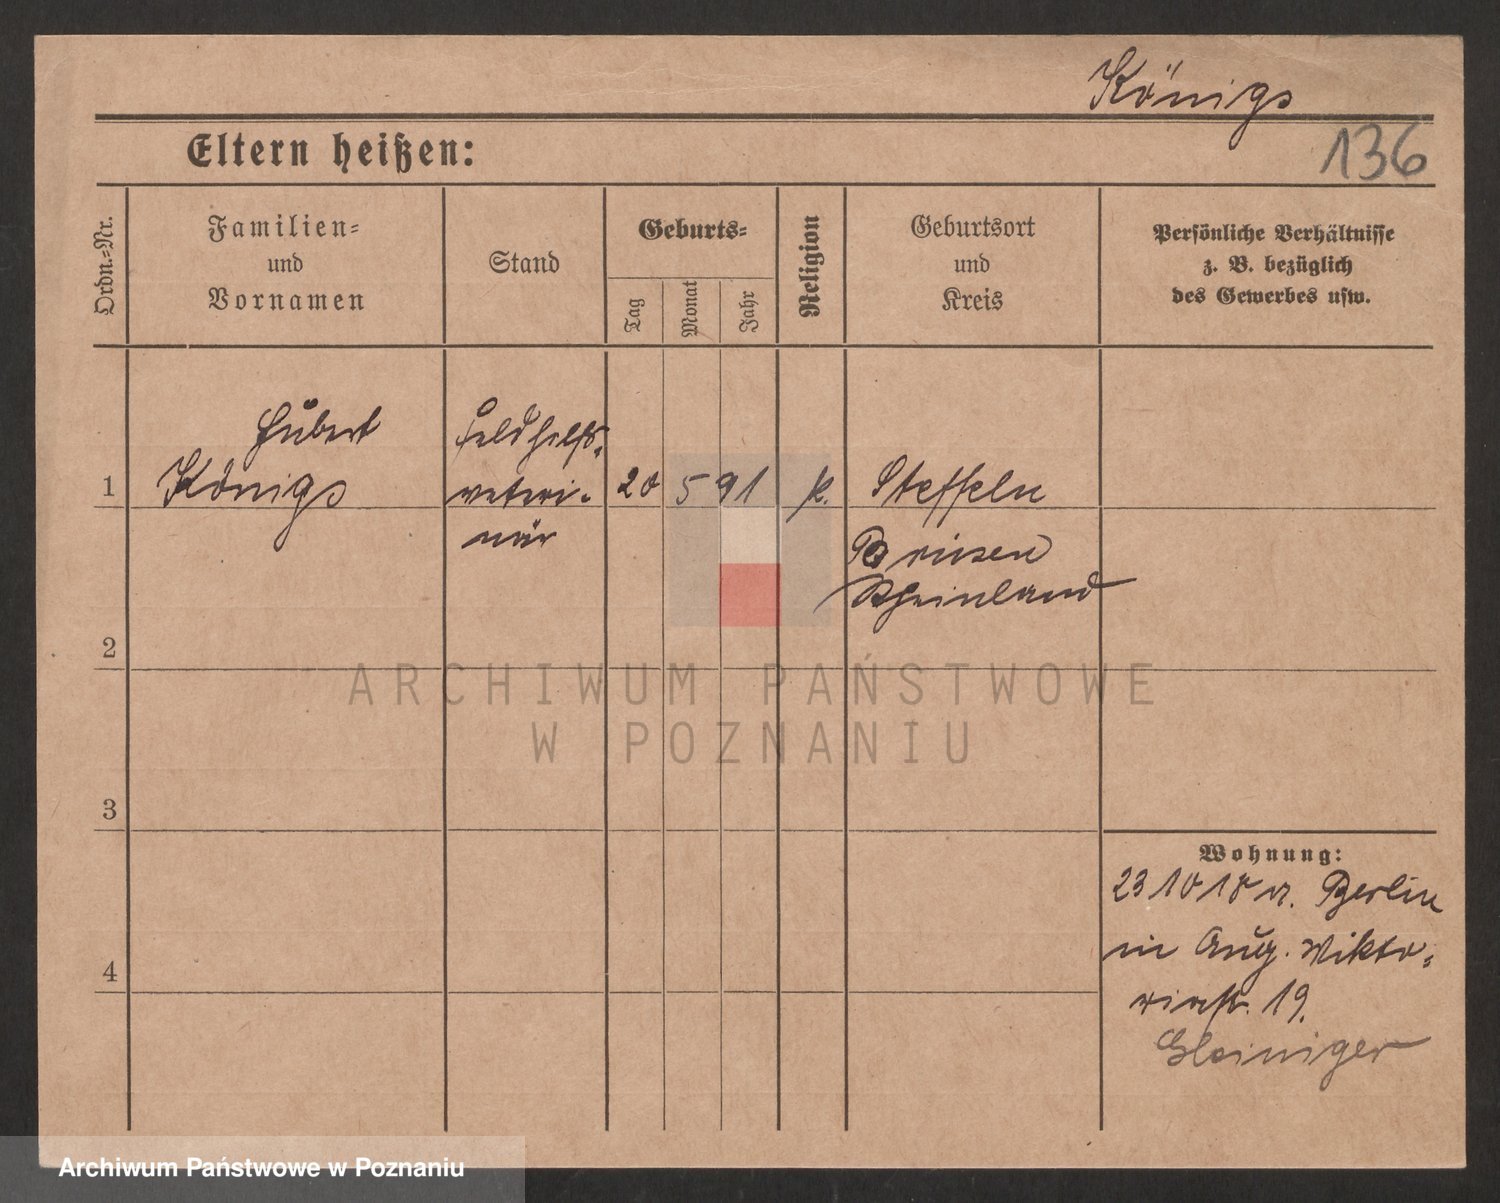 Königs
136
Eltern heißen:
Ordn.=Nr.
Familien=
und
Vornamen
Stand
Geburts=
Tag
Monat
Jahr
Religion
Geburtsort
und
Kreis
Persönliche Verhältnisse
z. B. bezüglich
des Gewerbes usw.
1
Hubert
Königs
Feldhilfs-
veteri-
när
20
5
91
k.
Steffeln
Rheinland
2
3
4
Wohnung:
23 10 18 v. Berlin
in Aug. Vikto-
riastr. 19.
ARCHIWUM PAŃSTWOWE
W POZNANIU
Archiwum Państwowe w Poznaniu